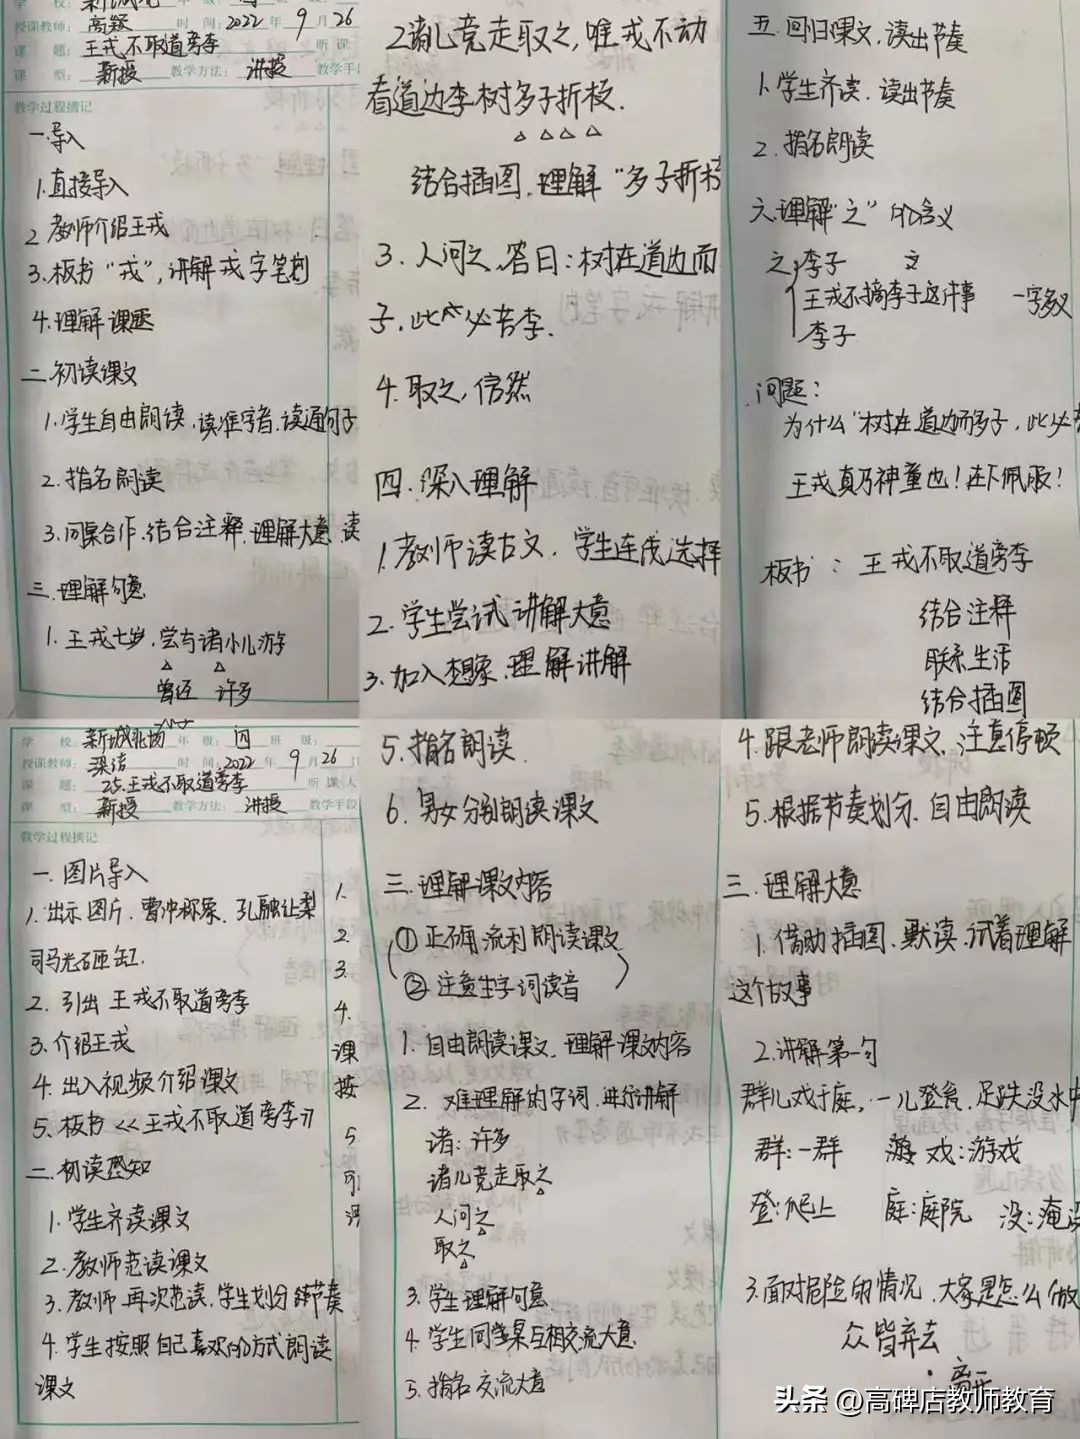 学 校:
授课教师: 高颖 时 间: 2022 年 9 月 26
课 题: 王戎不取道旁李 听 课
课 型: 新授 教学方法: 讲授 教学手段
教学过程摘记
一.导入
1.直接导入
2 教师介绍王戎
3.板书“戎”,讲解戎字笔划
4.理解课题
二.初读课文
1.学生自由朗读,读准字音,读通句子
2.指名朗读
3.同桌合作,结合注释,理解大意,读
三.理解句意
1.王戎七岁,尝与诸小儿游
曾经 许多
2.诸儿竞走取之,唯戎不动
看道边李树多子折枝.
结合插图,理解“多子折枝
3.人问之,答曰:树在道边而
子,此必苦李.
4.取之,信然
四.深入理解
1.教师读古文,学生连线选择
2.学生尝试讲解大意
3.加入想象,理解讲解
五.回归课文,读出节奏
1.学生齐读,读出节奏
2.指名朗读
六.理解“之”的含义
之 李子 文
王戎不摘李子这件事 一字多义
李子
问题:
为什么“树在道边而多子,此必
王戎真乃神童也!佩服!
板书:王戎不取道旁李
结合注释
联系生活
结合插图
学 校: 新城北场 年 级: 四 班 级:
授课教师: 梁洁 时 间: 2022 年 9 月 26
课 题: 25.王戎不取道旁李 听 课 人
课 型: 新授 教学方法: 讲授 教学手段
教学过程摘记
一.图片导入
1.出示图片,曹冲称象,孔融让梨
司马光砸缸.
2.引出王戎不取道旁李
3.介绍王戎
4.出入视频介绍课文
5.板书《王戎不取道旁李》
二.初读感知
1.学生齐读课文
2.教师范读课文
3.教师再次范读,学生划分节奏
4.学生按照自己喜欢的方式朗读
课文
1.
2.
3.
4.
课
按
5
5.指名朗读.
6.男女分别朗读课文
三.理解课文内容
①正确流利朗读课文
②注意生字词读音
1.自由朗读课文,理解课文内容
2.难理解的字词,进行讲解
诸:许多
诸儿竞走取之
人问之
取之
3.学生理解句意
4.学生同学桌互相交流大意
5.指名交流大意
4.跟老师朗读课文,注意停顿
5.根据节奏划分,自由朗读
三.理解大意
1.借助插图,默读,试着理解
这个故事
2.讲解第一句
群儿戏于庭,一儿登瓮,足跌没水中
群:一群 戏:游戏
登:爬上 庭:庭院 没:淹没
3.面对危险的情况,大家是怎么做
众皆弃去
离开
头条 @高碑店教师教育